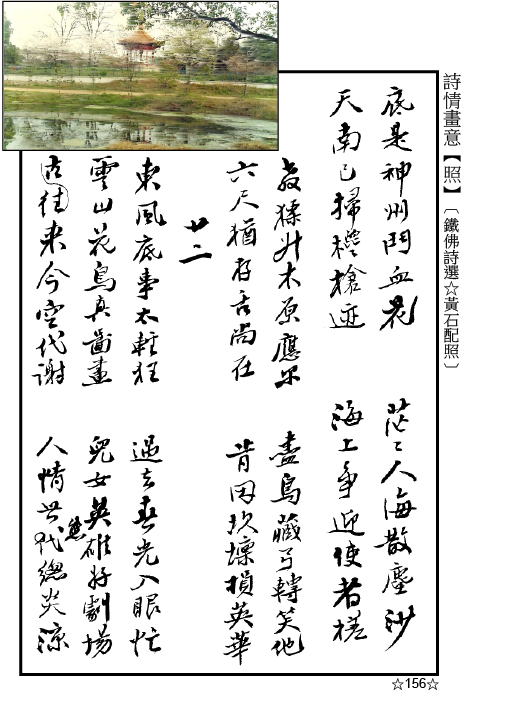 詩情畫意【照】〔鐵佛詩選☆黃石配照〕
底是神州鬥血花 茫〻人海散塵沙
天南已掃欃槍迹 海上爭迎使者槎
教猱升木原應尔 盡鳥藏弓轉笑他
六尺猶存舌尚在 肯因坎壈損英華
廿二
東風底事太輕狂 過去春光入眼忙
雲山花鳥真圖畫 兒女英雄好劇場
古往來今空代謝 人情世代總炎涼
態
☆156☆